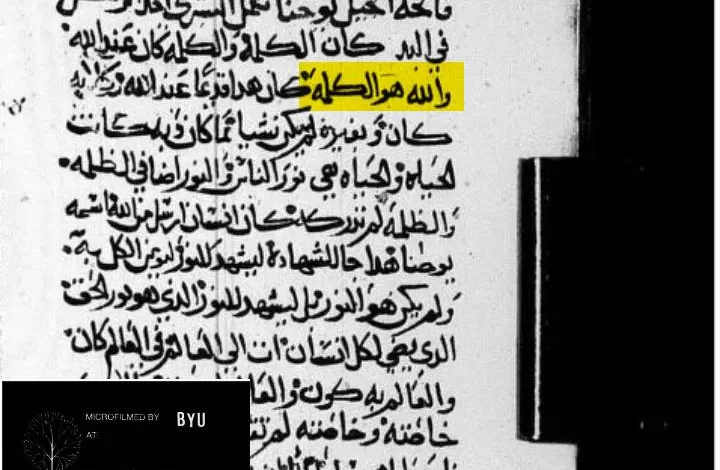 في البد كان الكلمة والكلمه كان عند الله
والله هو الكلمه كان هدا قدعا عند الله وكل به
كان و بغيره لم يكن شيا مما كان وبه كانت
الحياه والحياه هي نور الناس والنور اضا في الظلمه
والظلمه لم تدركه كان انسان ارسل من الله اسمه
يوحنا هدا جا للشهادة ليشهد للنور ليومن الكل به
ولم يكن هو النور بل ليشهد للنور الدي هو نور الحق
الدي يضي لكل انسان ات الى العالم في العالم كان
والعالم به كون والعا
خاصته وخاصته لم تق
MICROFILMED BY BYU
AT: